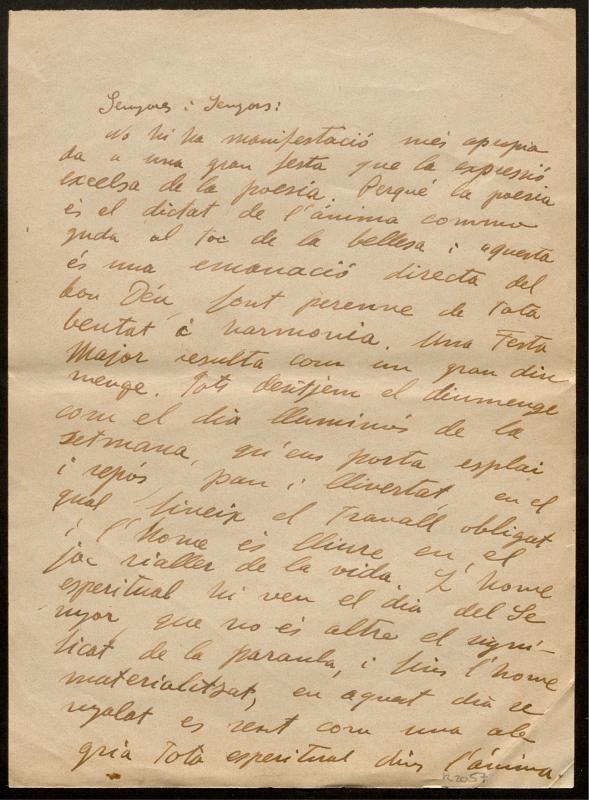 Senyores i Senyors:
No hi ha manifestació més apropia
da a una gran festa que la expressió
excelsa de la poesia. Perqué la poesia
és el dictat de l'ánima commo
guda al toc de la bellesa i aquesta
és una emanació directa del
bon Déu, font perenne de tota
beutat i harmonia. Una Festa
Major resulta com un gran diu
menge. Tots desitjem el diumenge
com el dia lluminós de la
setmana, qu'ens porta esplai
i repós, pau i llivertat, en el
qual fineix el travall obligat
i l'home és lliure en el
joc rialler de la vida. L'home
esperitual hi veu el dia del Se
nyor, que no és altre el signi-
ficat de la paraula, i fins l'home
materialitzat, en aquest dia se
nyalat es sent com una ale
gria tota esperitual dins l'ánima.
R2057